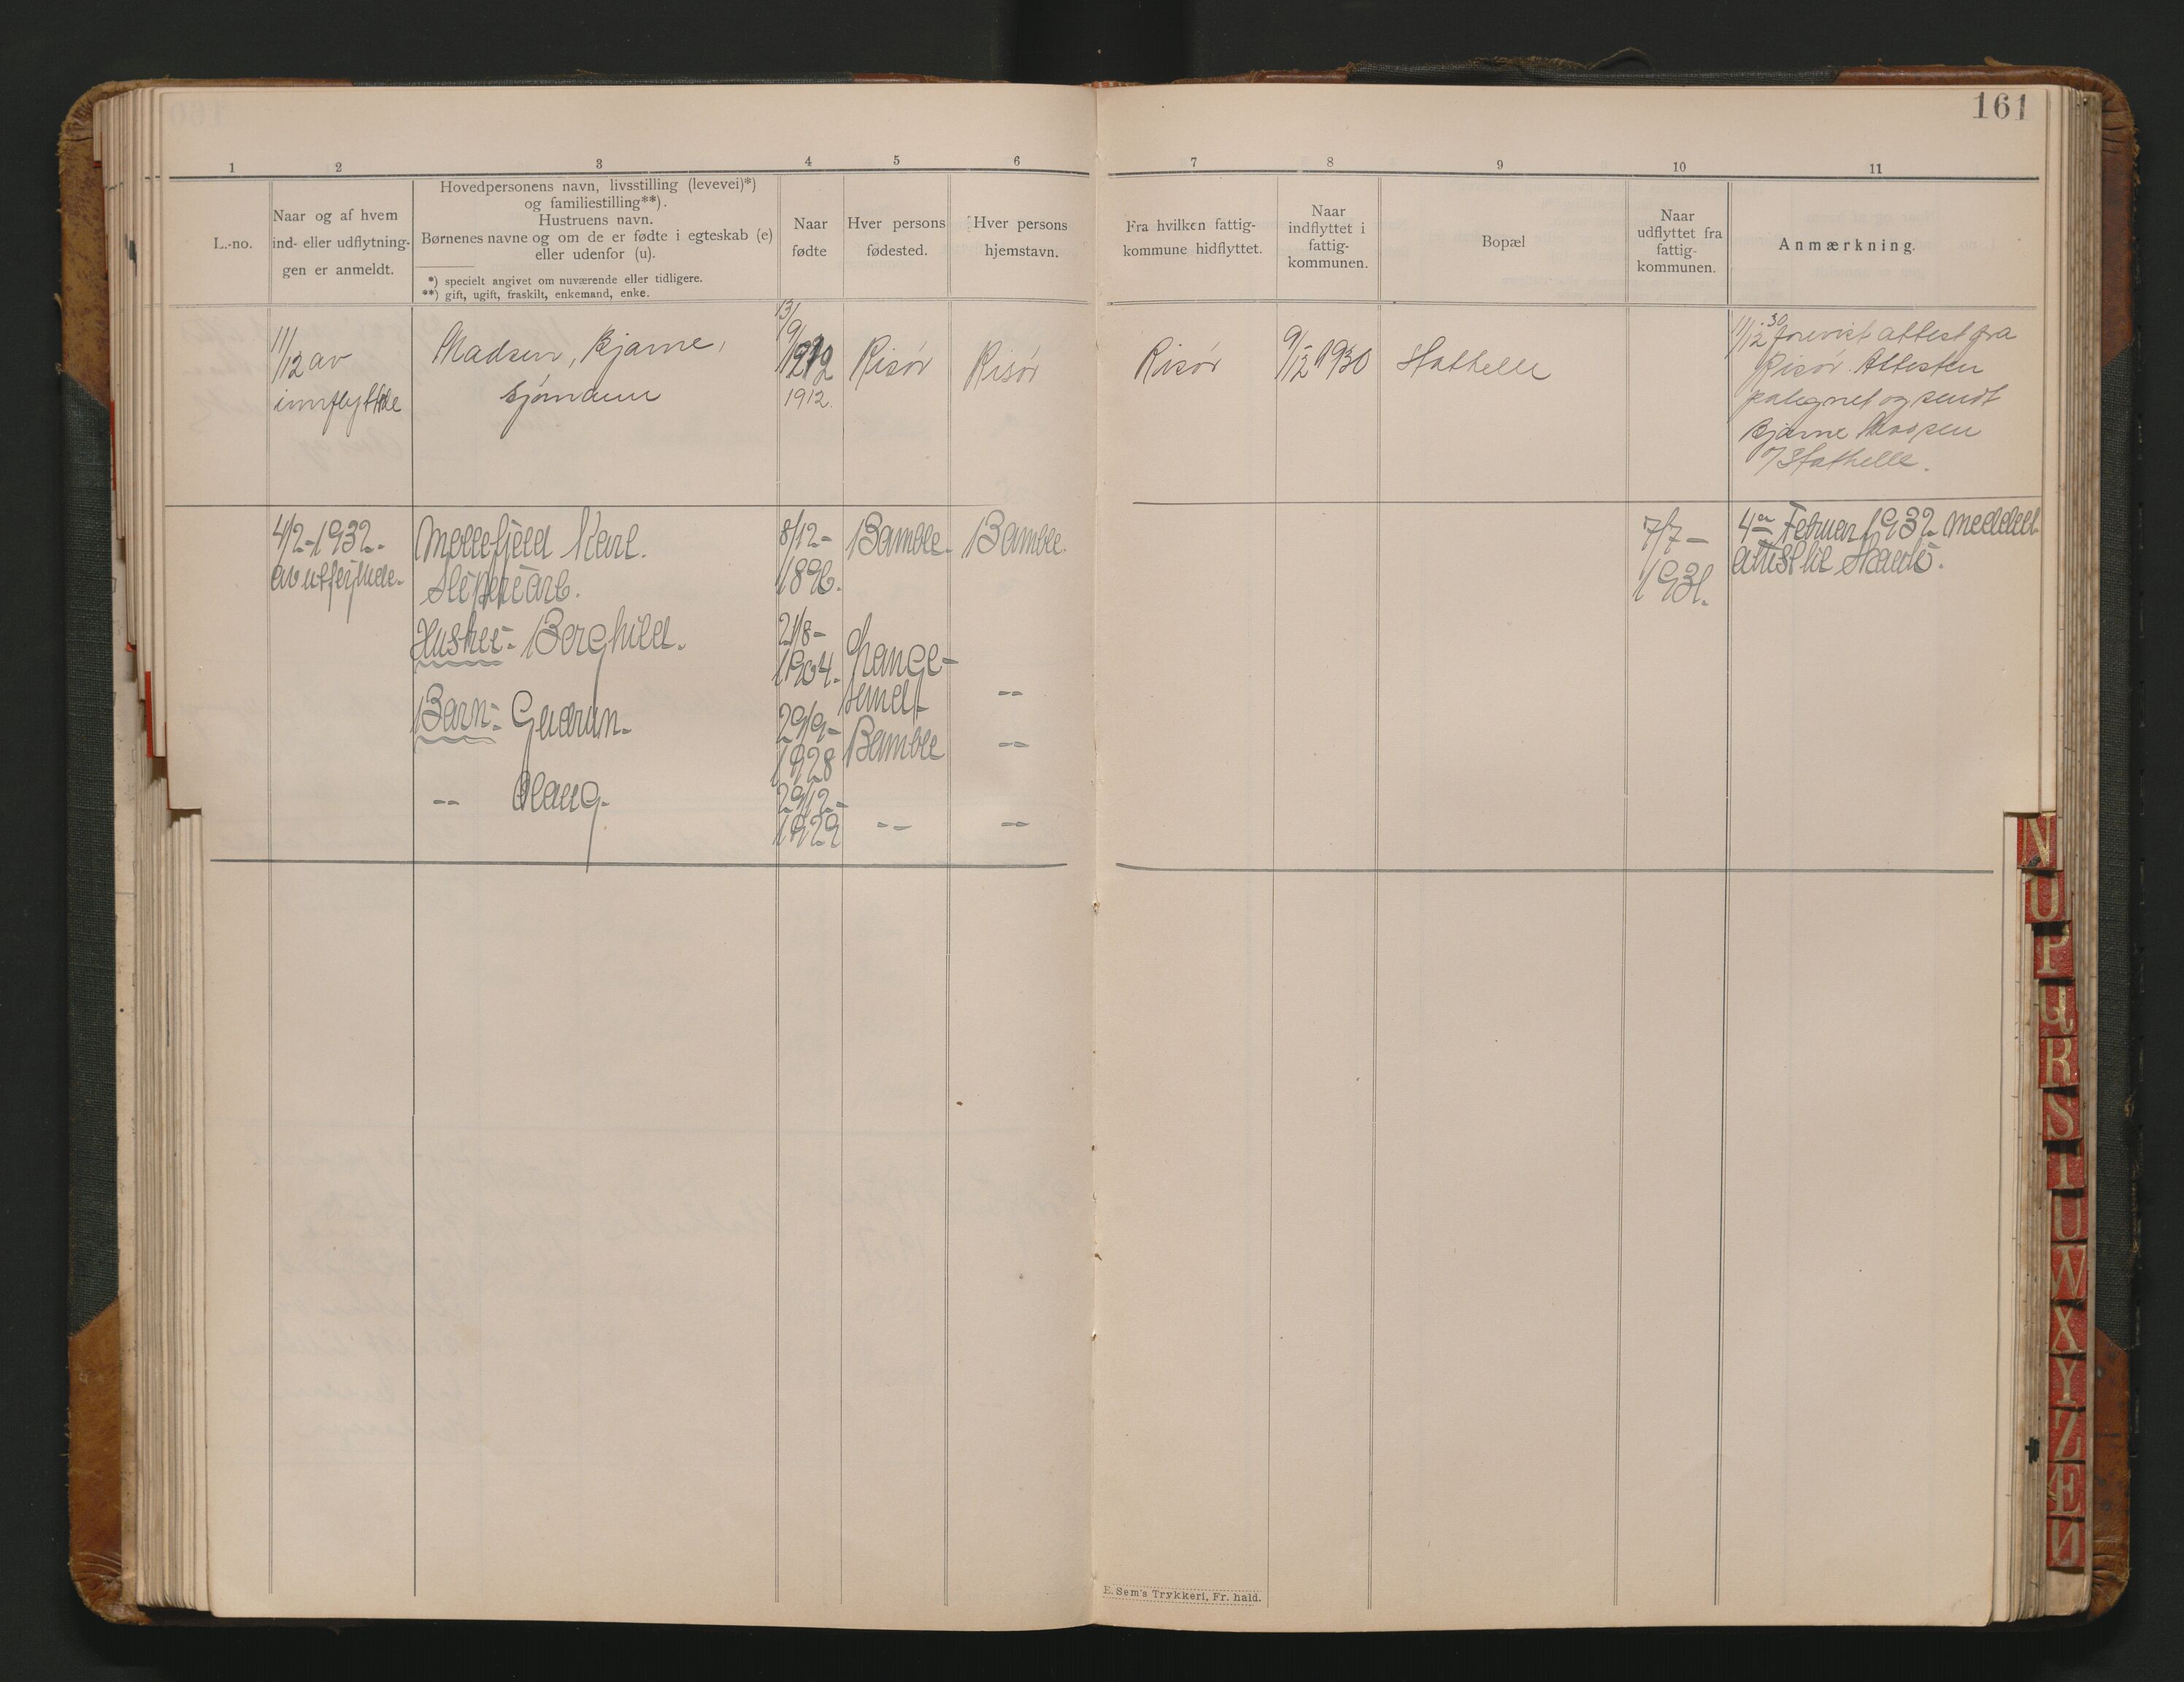 161
1 2 3 4 5 6 7 8 9 10 11
L.-no.
Naar og af hvem
ind- eller udflytnin-
gen er anmeldt.
Hovedpersonens navn, livsstilling (levevei)*)
og familiestilling**).
Hustruens navn.
Børnenes navne og om de er fødte i egteskab (e)
eller udenfor (u).
*) specielt angivet om nuværende eller tidligere.
**) gift, ugift, fraskilt, enkemand, enke.
Naar
fødte
Hver persons
fødested.
Hver persons
hjemstavn.
Fra hvilken fattig-
kommune hidflyttet.
Naar
indflyttet i
fattig-
kommunen.
Bopæl
Naar
udflyttet fra
fattig-
kommunen.
Anmærkning.
11/12 av
innflyttede
Madsen, Bjarne,
sjømann
13/9
1912
1912.
Risør
Risør
Risør
9/12 1930
Stathelle
11/12 30 forevist attest fra
Risør. Attesten
palegnet og sendt
Bjarne
Stathelle.
4/2-1932.
av
Møllefjeld Karl.
Sliperiarb.
Hustru:- Borghild.
Barn:- Gudrun.
-- Olaug.
8/12-
1896.
21/8-
1904.
29/9-
1928
29/12-
1929
Bamble.
sund
Bamble
--
Bamble.
--
--
--
7/7-
1931.
4de Februar 1932 meddelt
attest til
E. Sem's Trykkeri, Fr. hald.
N
O
P
Q
R
S
T
U
W
X
Y
Z
Æ
Ø